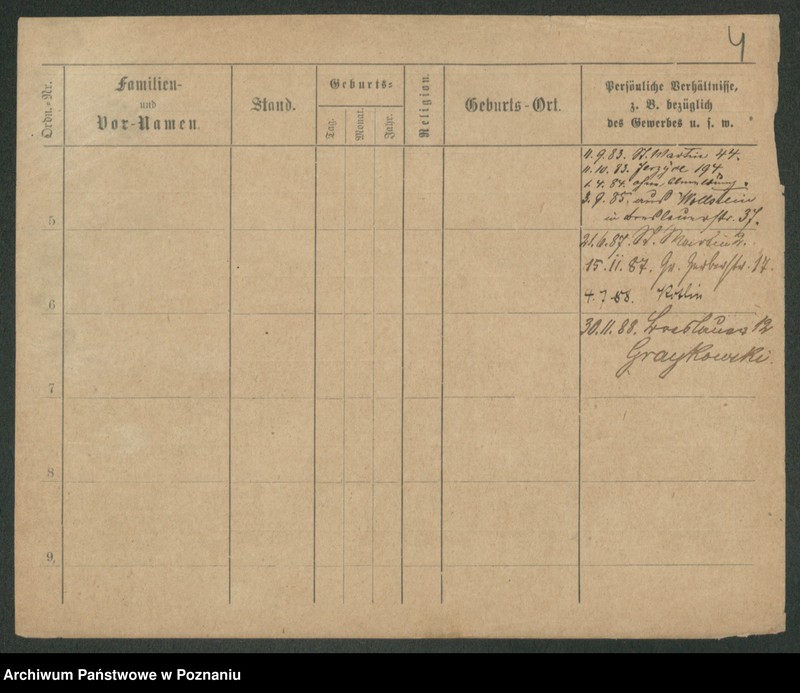 4
Ordn.-Nr.
Familien-
und
Vor-Namen.
Stand.
Geburts-
Tag.
Monat.
Jahr.
Religion.
Geburts-Ort.
Persönliche Verhältnisse,
z. B. bezüglich
des Gewerbes u. s. w.
11.9.83. St. Martin 44.
11.10.83. Jerzyce 194
1.4.84. ohne Abmeldung.
3.9.85. aus Wollstein
in Breslauerstr. 37.
5
21.6.87. St. Martin
15.11.87. Gr. Gerberstr. 17.
4.7.88.
6
30.11.88. Breslauer 12
7
8
9.
Archiwum Państwowe w Poznaniu